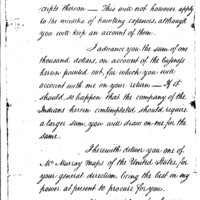 cripts thereon — This will not however apply
to the articles of travelling expences, although
you will keep an account of them.
I advance you the sum of one
thousand dollars, on account of the business
herein pointed out, for which you will
account with me on your return — If it
should so happen that the company of the
Indians herein contemplated should require
a larger sum, you will draw on me for the
same.
I herewith deliver you one of
Mr Murray maps of the United States, for
your general direction being the best in my
power at present to procure for you.